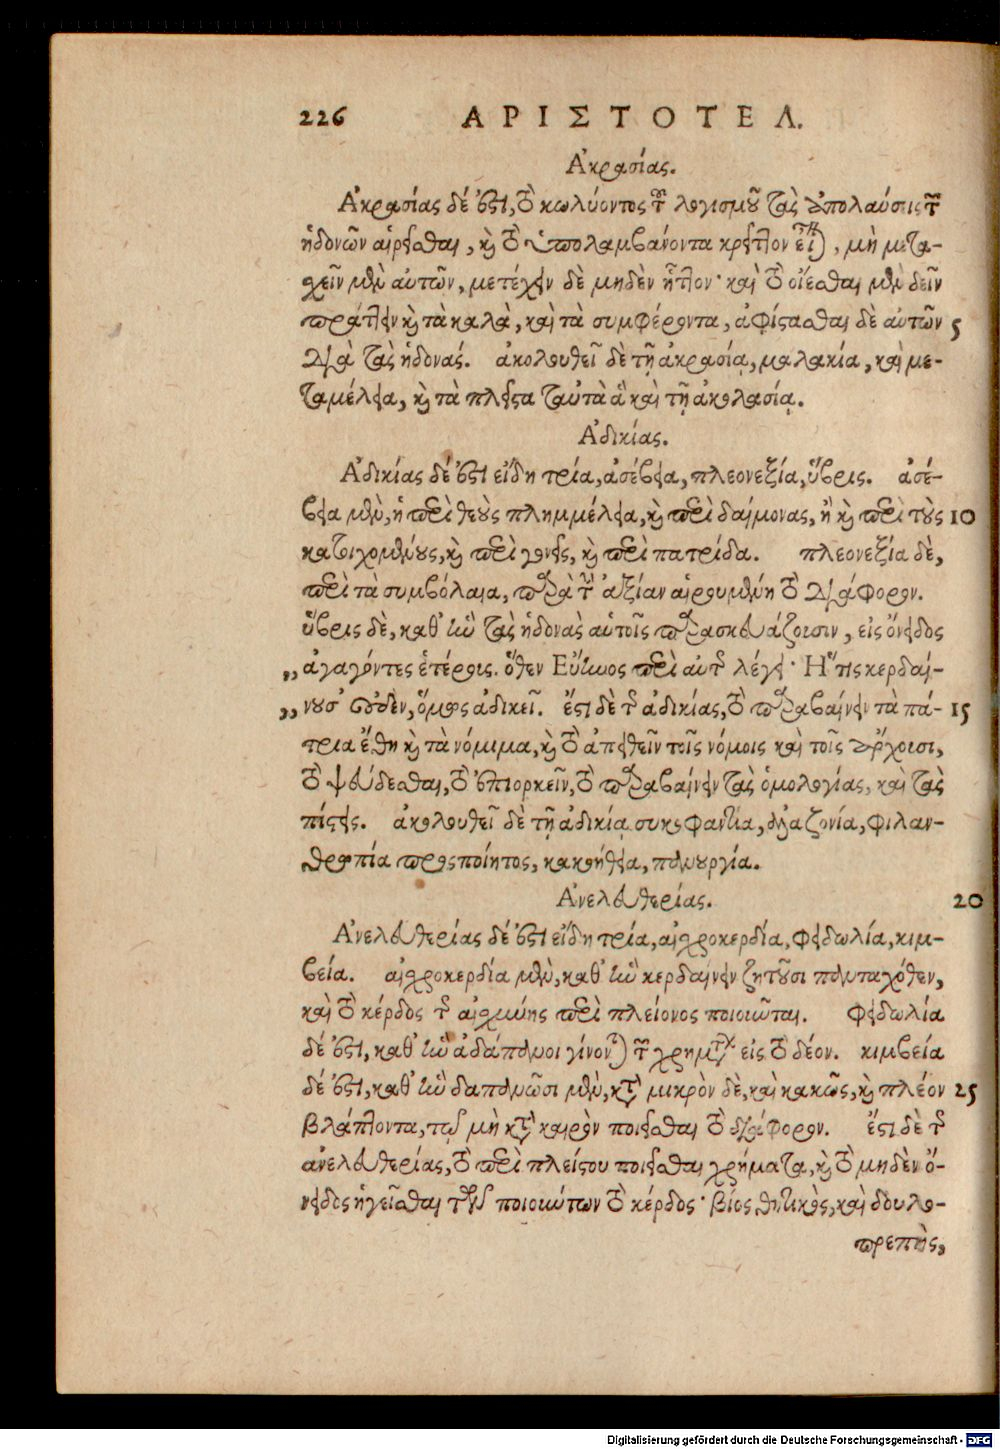 226 ΑΡΙΣΤΟΤΕΛ.
Ἀκρασίας.
Ἀκρασίας δέ ἐστι, τὸ κωλύοντος τοῦ λογισμοῦ τὰς ἀπολαύσεις τῶν
ἡδονῶν αἱρεῖσθαι, καὶ τὸ ὑπολαμβάνοντα κρεῖττον εἶναι, μὴ μετα-
χεῖν μὲν αὐτῶν, μετέχειν δὲ μηδὲν ἧττον· καὶ τὸ οἴεσθαι μὲν δεῖν
πράττειν καὶ τὰ καλὰ, καὶ τὰ συμφέροντα, ἀφίστασθαι δὲ αὐτῶν 5
διὰ τὰς ἡδονάς. ἀκολουθεῖ δὲ τῇ ἀκρασίᾳ, μαλακία, καὶ με-
ταμέλεια, καὶ τὰ πλεῖστα ταὐτὰ ἃ καὶ τῇ ἀκολασίᾳ.
Ἀδικίας.
Ἀδικίας δέ ἐστι εἴδη τρία, ἀσέβεια, πλεονεξία, ὕβρις. ἀσέ-
βεια μὲν, ἡ περὶ θεοὺς πλημμέλεια, καὶ περὶ δαίμονας, ἢ καὶ περὶ τοὺς 10
κατοιχομένους, καὶ περὶ γονεῖς, καὶ περὶ πατρίδα. πλεονεξία δὲ,
περὶ τὰ συμβόλαια, παρὰ τὴν ἀξίαν αἱρουμένη τὸ διάφορον.
ὕβρις δὲ, καθ' ἣν τὰς ἡδονὰς αὑτοῖς παρασκευάζουσιν, εἰς ὄνειδος
„ ἀγαγόντες ἑτέροις. ὅθεν Εὔηνος περὶ αὐτῆς λέγει· Ἥτις κερδαί-
„ νουσ' οὐδὲν, ὅμως ἀδικεῖ. ἔστι δὲ τῆς ἀδικίας, τὸ παραβαίνειν τὰ πά- 15
τρια ἔθη καὶ τὰ νόμιμα, καὶ τὸ ἀπειθεῖν τοῖς νόμοις καὶ τοῖς ἄρχουσι,
τὸ ψεύδεσθαι, τὸ ἐπιορκεῖν, τὸ παραβαίνειν τὰς ὁμολογίας, καὶ τὰς
πίστεις. ἀκολουθεῖ δὲ τῇ ἀδικίᾳ συκοφαντία, ἀλαζονία, φιλαν-
θρωπία προσποίητος, κακοήθεια, πανουργία.
Ἀνελευθερίας. 20
Ἀνελευθερίας δέ ἐστι εἴδη τρία, αἰσχροκερδία, φειδωλία, κιμ-
βεία. αἰσχροκερδία μὲν, καθ' ἣν κερδαίνειν ζητοῦσι πανταχόθεν,
καὶ τὸ κέρδος τῆς αἰσχύνης περὶ πλείονος ποιοῦνται. Φειδωλία
δέ ἐστι, καθ' ἣν ἀδάπανοι γίνονται τῶν χρημάτων εἰς τὸ δέον. κιμβεία
δέ ἐστι, καθ' ἣν δαπανῶσι μὲν, κατὰ μικρὸν δὲ, καὶ κακῶς, καὶ πλέον 25
βλάπτονται, τῷ μὴ κατὰ καιρὸν ποιεῖσθαι τὸ διάφορον. ἔστι δὲ τῆς
ἀνελευθερίας, τὸ περὶ πλείστου ποιεῖσθαι χρήματα, καὶ τὸ μηδὲν ὄ-
νειδος ἡγεῖσθαι τῶν ποιούντων τὸ κέρδος· βίος θητικὸς, καὶ δουλο-
πρεπὴς,
Digitalisierung gefördert durch die Deutsche Forschungsgemeinschaft - DFG